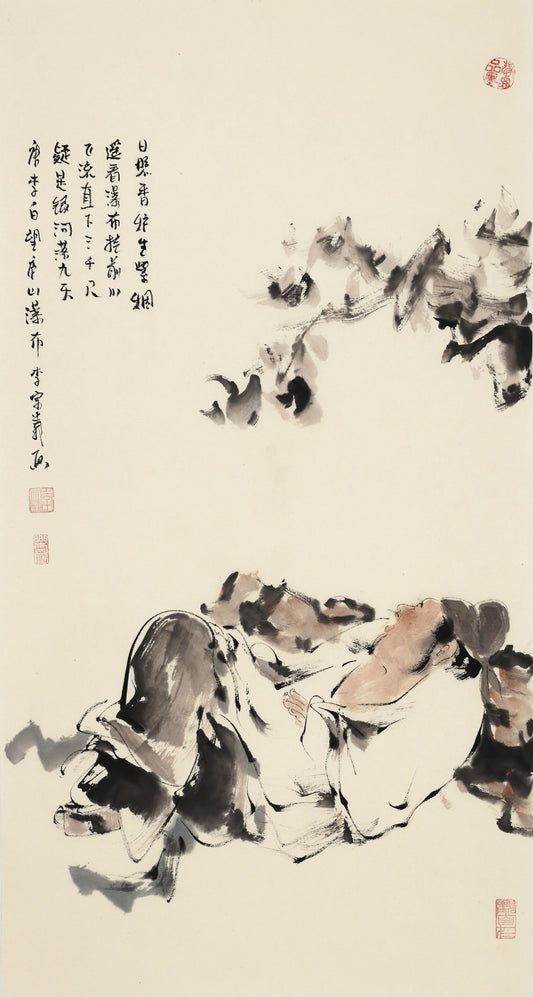 日照香炉生紫烟
遥看瀑布挂前川
飞流直下三千尺
疑是银河落九天
唐李白望庐山瀑布 李宗义画